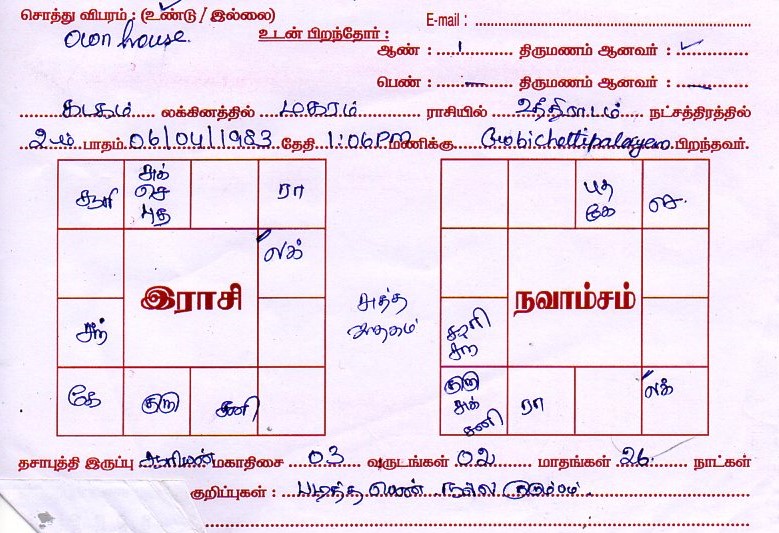 சொத்து விபரம் : (உண்டு / இல்லை) E-mail :
Own house. உடன் பிறந்தோர் :
ஆண் : 1 திருமணம் ஆனவர் : ✓
பெண் : — திருமணம் ஆனவர் : —
கடகம் லக்கினத்தில் மகரம் ராசியில் உத்திராடம் நட்சத்திரத்தில்
2ம் பாதம் 06/04/1983 தேதி 1:06PM மணிக்கு Gobichettipalayam பிறந்தவர்.
சூரி சுக் செ புத ரா
லக்
இராசி
சந்
கே குரு சனி
சுத்த ஜாதகம்
புத கே செ.
நவாம்சம்
சூரி சந்
குரு சுக் சனி ரா லக்
தசாபுத்தி இருப்பு சூரியன் மகாதிசை 03 வருடங்கள் 02 மாதங்கள் 26 நாட்கள்
குறிப்புகள் : படித்த பெண் நல்ல குடும்பம்.